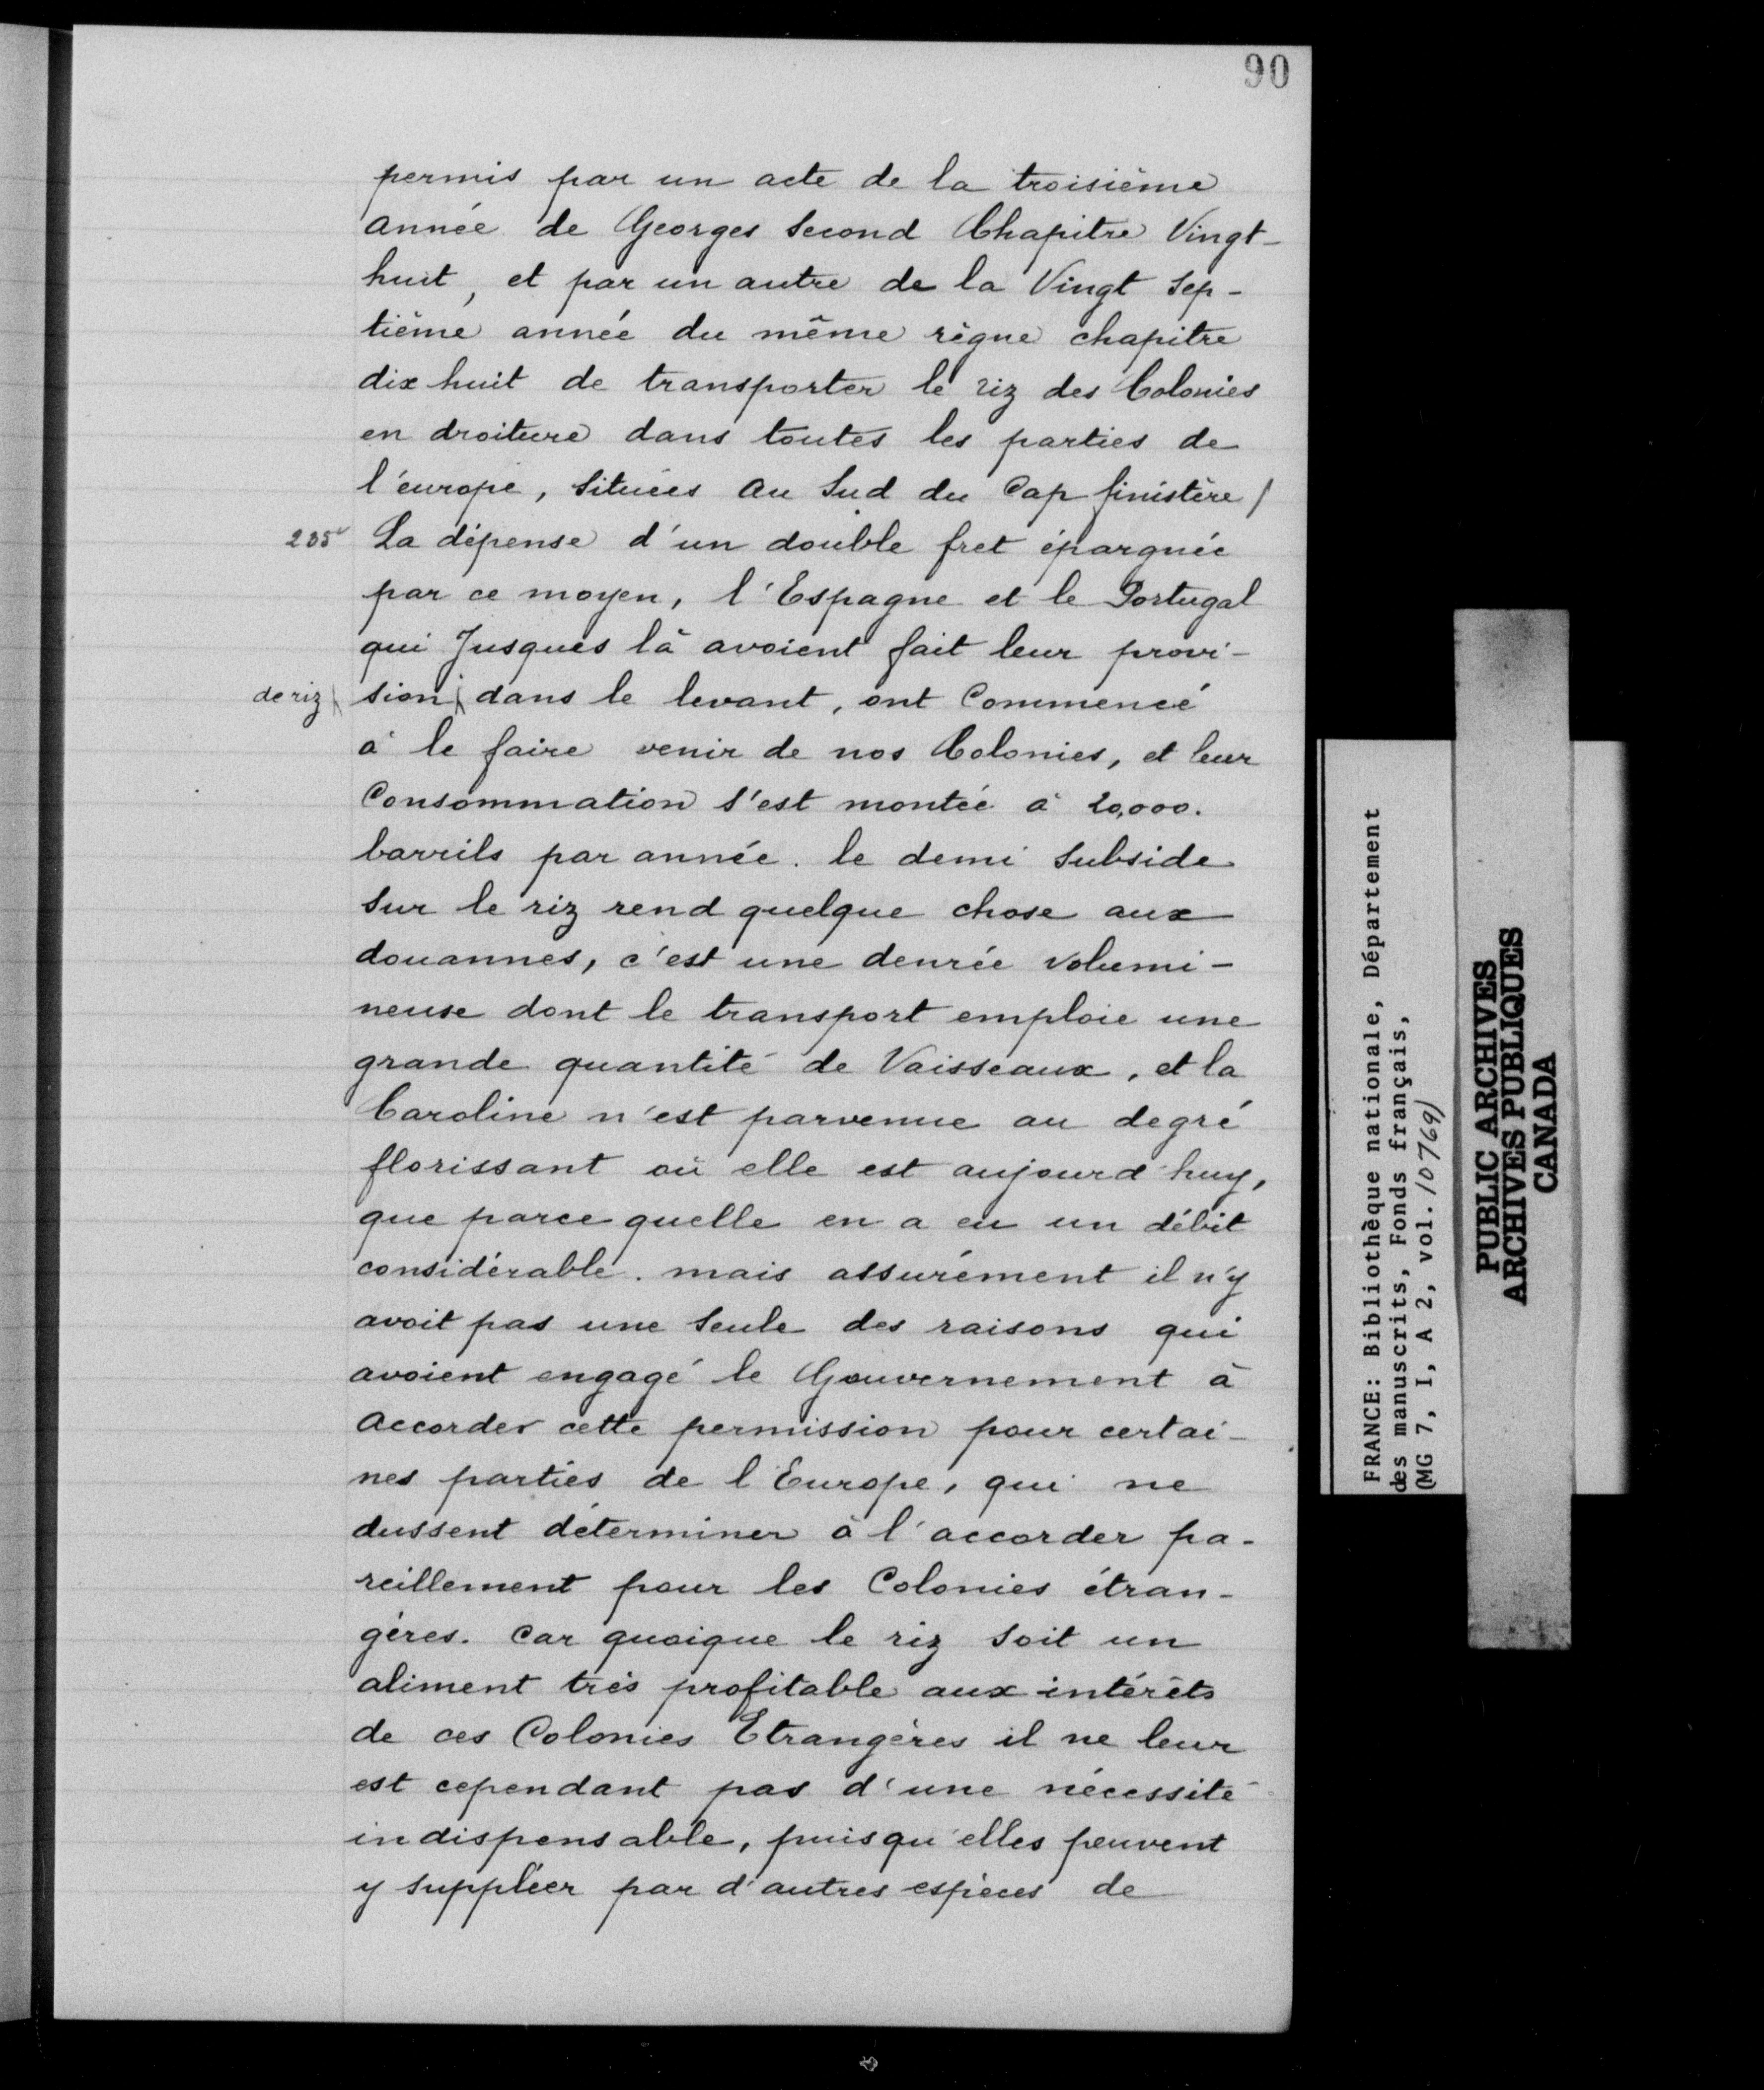 90
permis par un acte de la troisième
année de Georges Second Chapitre Vingt-
huit, et par un autre de la Vingt Sep-
tième année du même règne chapitre
dix huit de transporter le riz des Colonies
en droiture dans toutes les parties de
l'europe, Situées Au Sud du Cap finistère/
235 La dépense d'un double fret épargnée
par ce moyen, l'Espagne et le Portugal
qui Jusques là avoient fait leur provi-
de riz sion dans le levant, ont Commencé
à le faire venir de nos Colonies, et leur
Consommation s'est montée à 20,000.
barrils par année. le demi Subside
Sur le riz rend quelque chose aux
douannes, c'est une denrée volumi-
neuse dont le transport emploie une
grande quantité de Vaisseaux, et la
Caroline n'est parvenue au degré
florissant où elle est aujourd'huy,
que parce quelle en a eu un débit
considérable. mais assurément il n'y
avoit pas une Seule des raisons qui
avoient engagé le Gouvernement à
Accorder cette permission pour certai-
nes parties de l'Europe, qui ne
dussent déterminer à l'accorder pa-
reillement pour les Colonies étran-
gères. Car quoique le riz soit un
aliment très profitable aux intérêts
de ces Colonies Etrangères il ne leur
est cependant pas d'une nécessité
indispensable, puisqu'elles peuvent
y suppléer par d'autres espèces de
FRANCE: Bibliothèque nationale, Département
des manuscrits, Fonds français,
(MG 7, I, A 2, vol. 10769)
PUBLIC ARCHIVES
ARCHIVES PUBLIQUES
CANADA